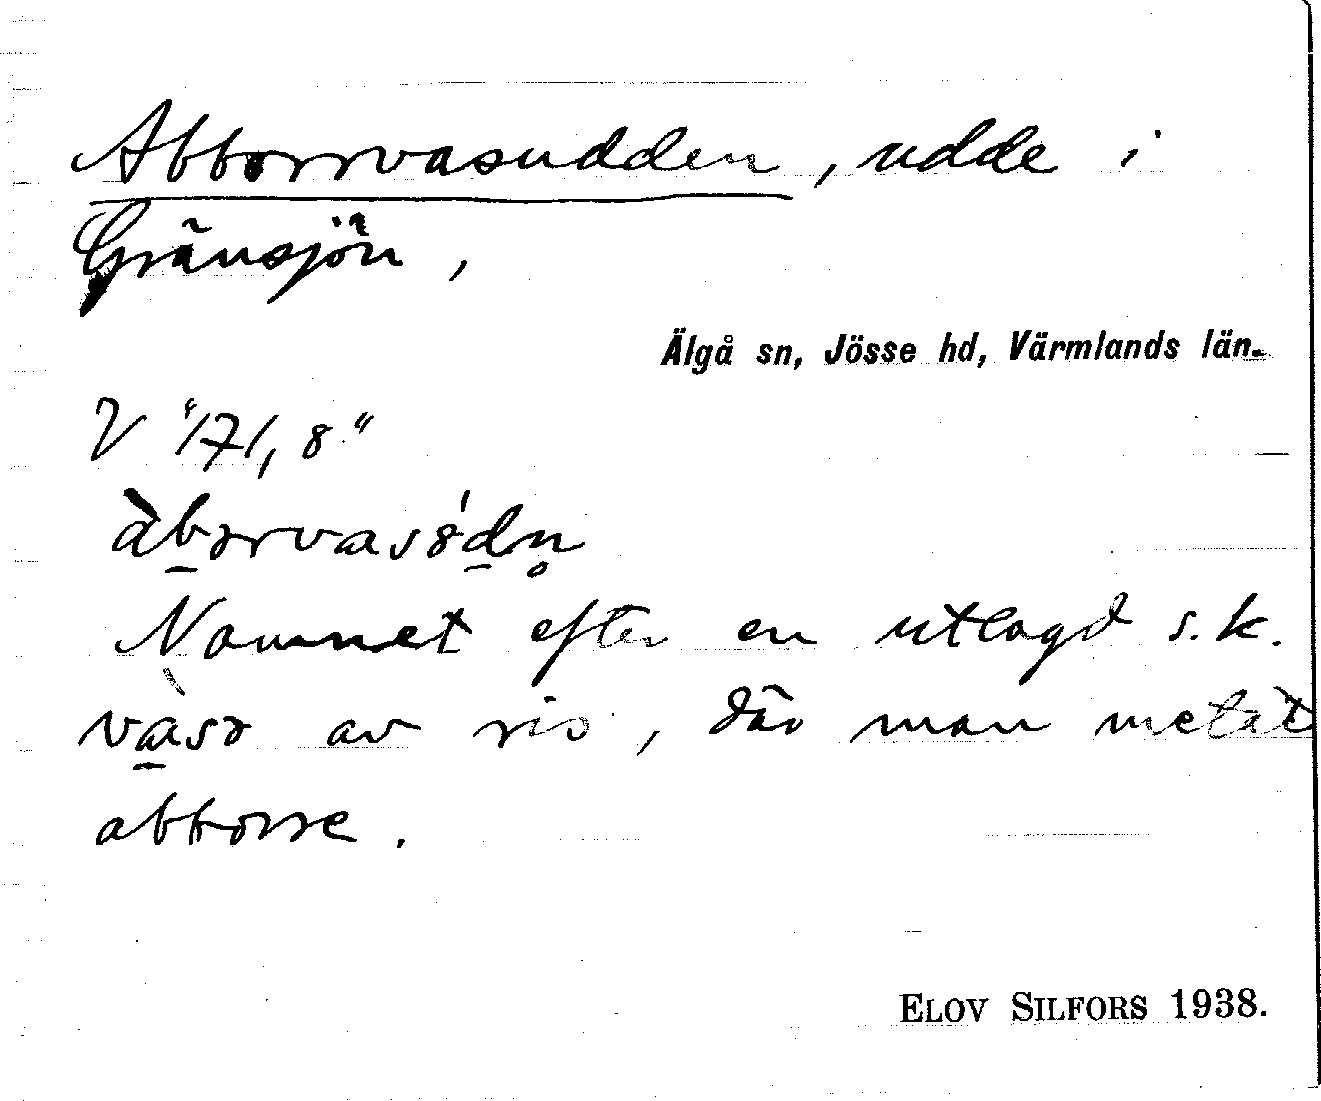 Abborrvasudden, udde i
Gränsjön,
Älgå sn, Jösse hd, Värmlands län.
V "171,8"
Namnet efter en utlagd s.k.
vase av ris, där man metat
abborre.
ELOV SILFORS 1938.